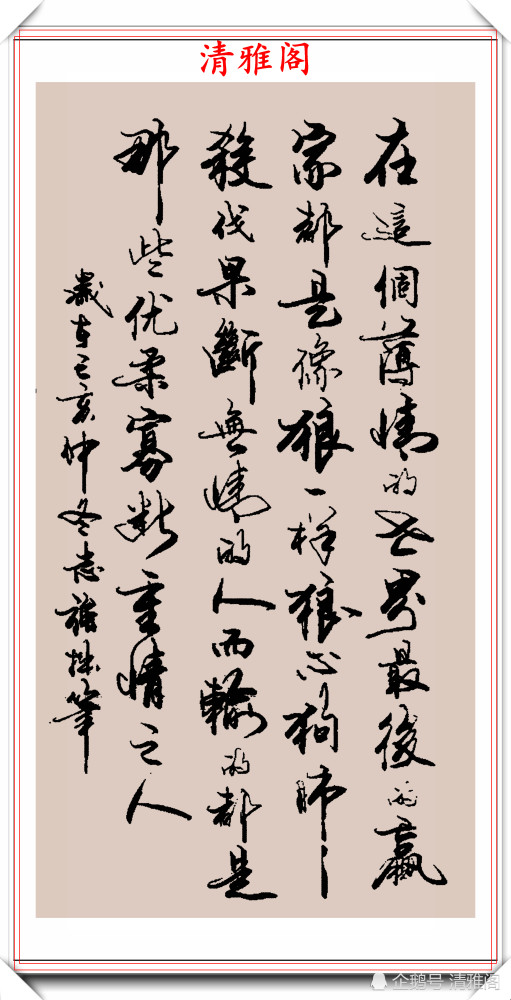 清雅阁
在這個薄情的世界最後的贏
家都是像狼一样狼心狗肺
殺伐果斷無情的人而輸的都是
那些优柔寡断重情之人
歲在己亥仲冬志強拙筆
企鹅号 清雅阁